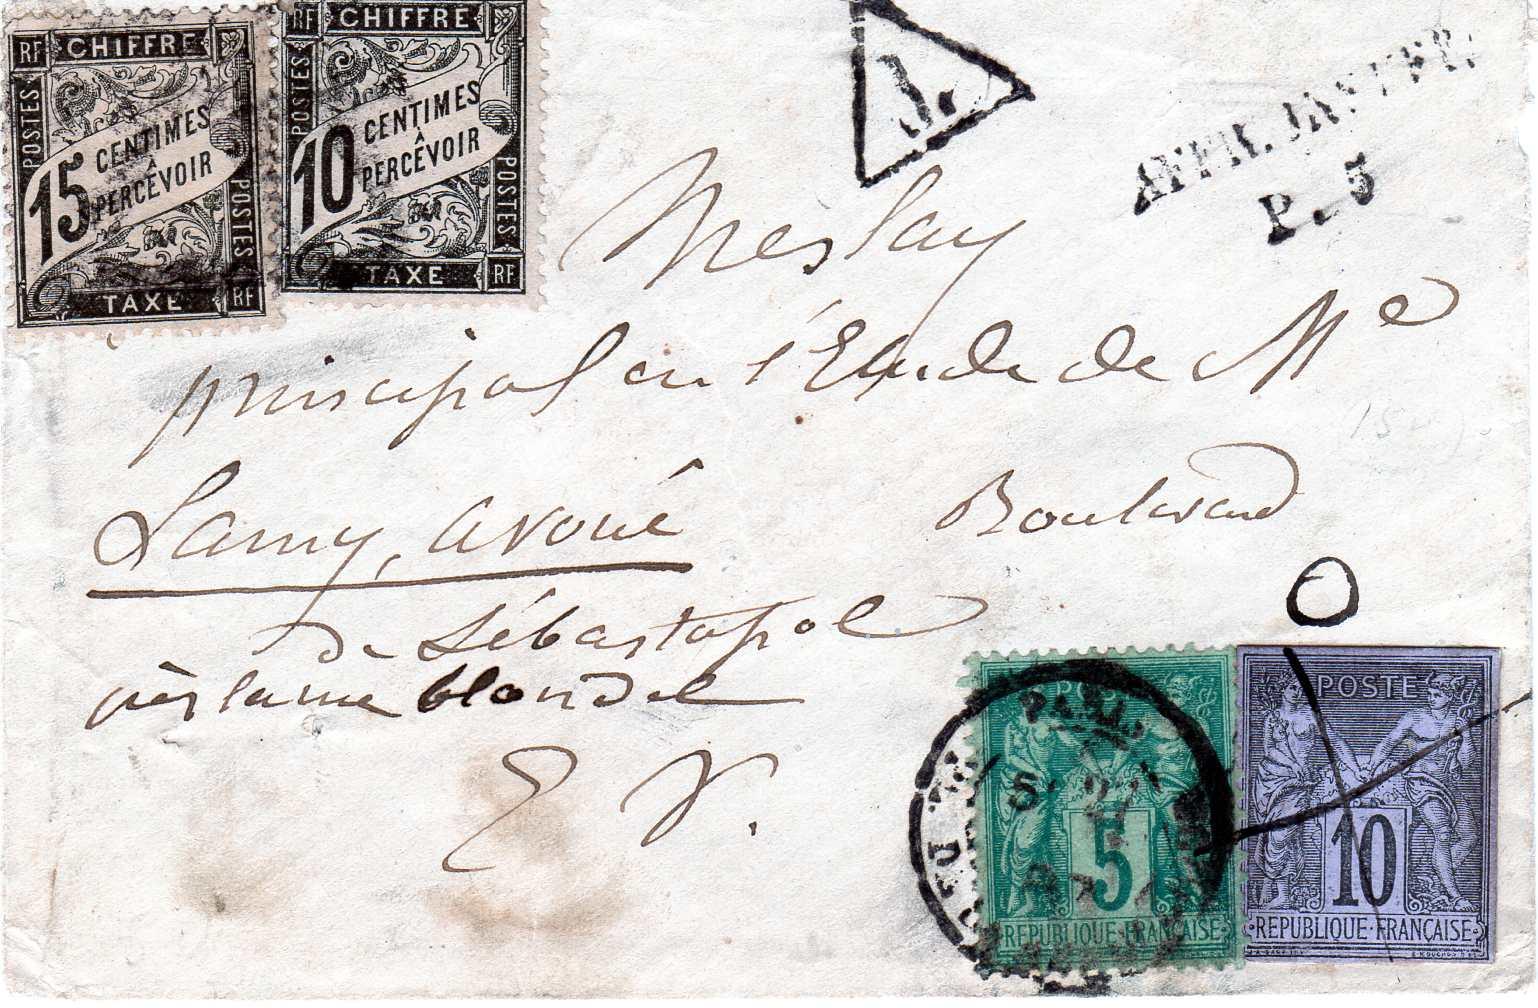 RF CHIFFRE
POSTES
15 CENTIMES
À
PERCEVOIR
POSTES
TAXE RF
RF CHIFFRE
POSTES
10 CENTIMES
À
PERCEVOIR
POSTES
TAXE RF
AFFR. INSUFF.
P. 5
Meslay
principal en l'Etude de Me
Lamy, avoué Boulevard
de Sébastopol
près la rue blondel
E V.
O
POSTE
PARIS
5
REPUBLIQUE FRANÇAISE
POSTE
10
REPUBLIQUE FRANÇAISE